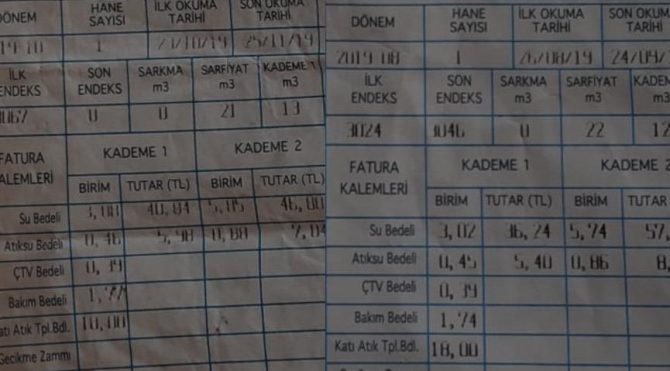 DÖNEM HANE SAYISI İLK OKUMA TARİHİ SON OKUMA TARİHİ
1 25/11/19
İLK ENDEKS SON ENDEKS SARKMA m3 SARFİYAT m3 KADEME 1
0 0 21 13
FATURA KALEMLERİ KADEME 1 KADEME 2
BİRİM TUTAR (TL) BİRİM TUTAR (TL)
Su Bedeli 40,84
Atıksu Bedeli 0,46 5,98 0,88
ÇTV Bedeli 0,39
Bakım Bedeli 1,77
Katı Atık Tpl.Bdl.
Gecikme Zammı
DÖNEM HANE SAYISI İLK OKUMA TARİHİ SON OKUMA TARİHİ
2019 08 1 26/08/19 24/09/
İLK ENDEKS SON ENDEKS SARKMA m3 SARFİYAT m3 KADEM
3024 3046 0 22 12
FATURA KALEMLERİ KADEME 1 KADEME 2
BİRİM TUTAR (TL) BİRİM TUTAR
Su Bedeli 3,02 36,24 5,74 57,
Atıksu Bedeli 0,45 5,40 0,86 8,
ÇTV Bedeli 0,39
Bakım Bedeli 1,74
Katı Atık Tpl.Bdl. 18,00